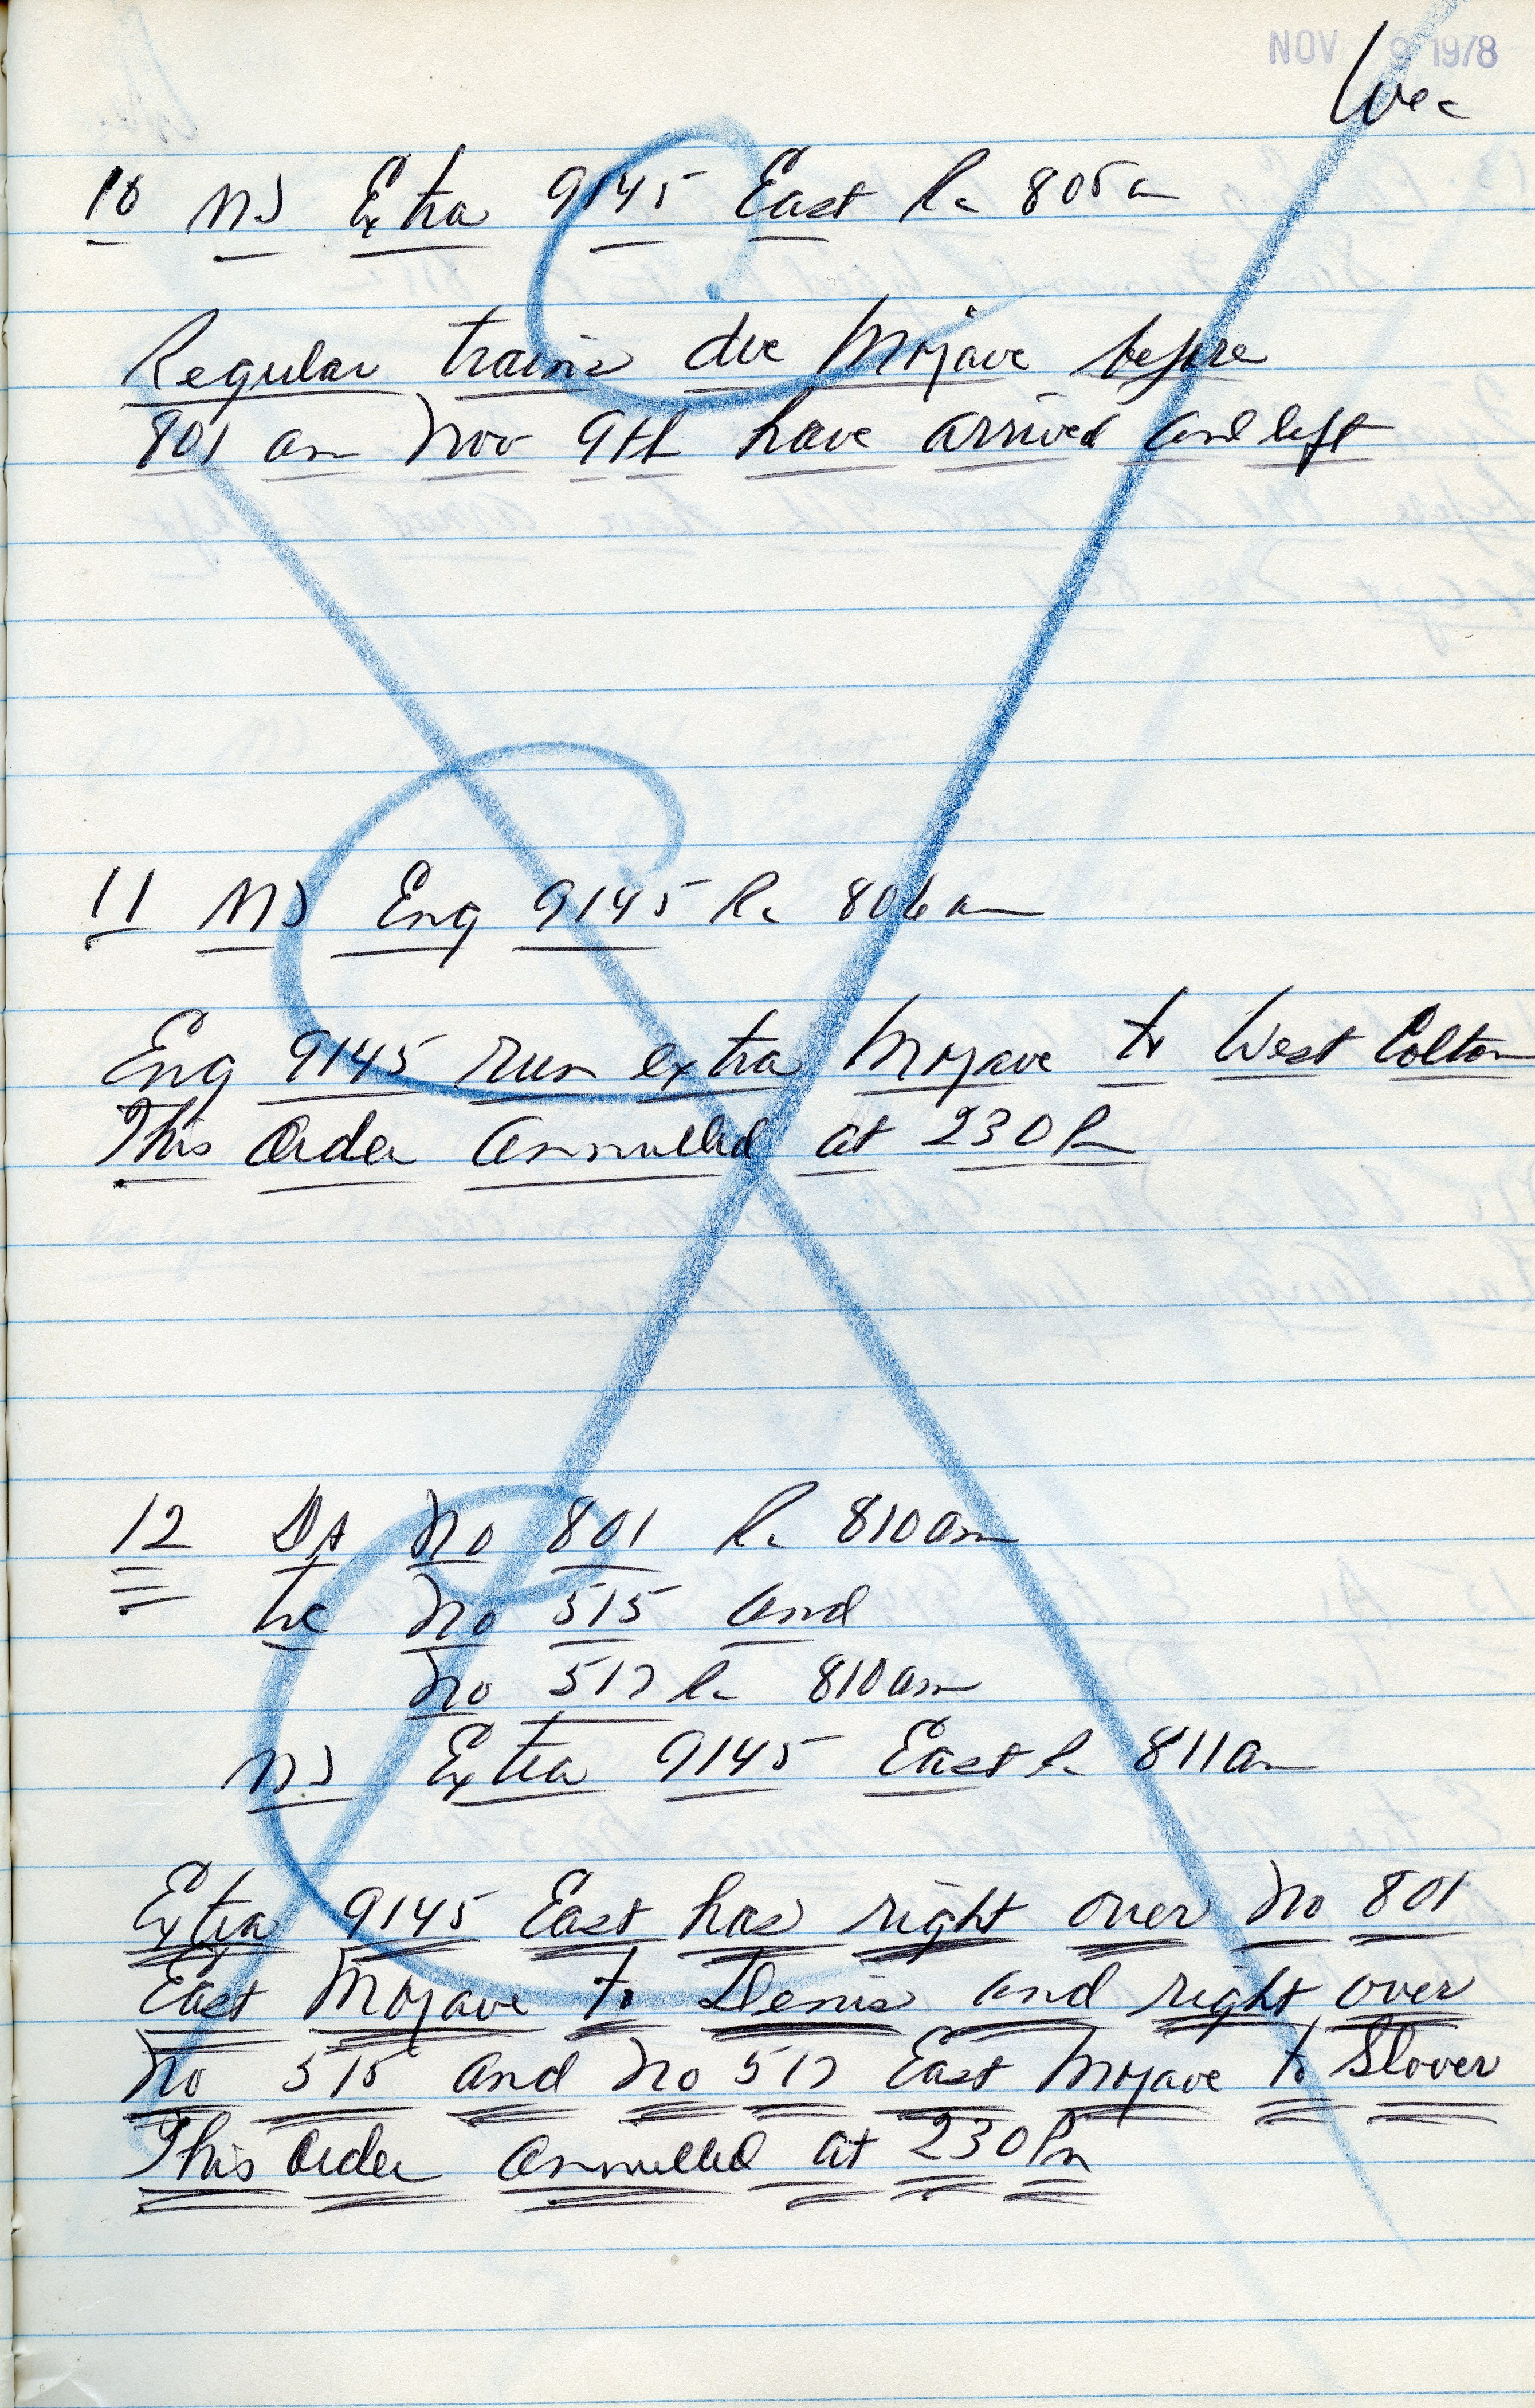 NOV 9 1978
10 MJ Extra 9145 East 805am
Regular trains due Mojave before
801 am Nov 9th have arrived and left
11 MJ Eng 9145 806 am
Eng 9145 run extra Mojave to West Colton
This Order annulled at 230 Pm
12 No 801 810 am
No 515 and
No 517 810 am
MJ Extra 9145 East 811 am
Extra 9145 East has right over No 801
East Mojave to Denis and right over
No 515 and No 517 East Mojave to Slover
This order annulled at 230 Pm